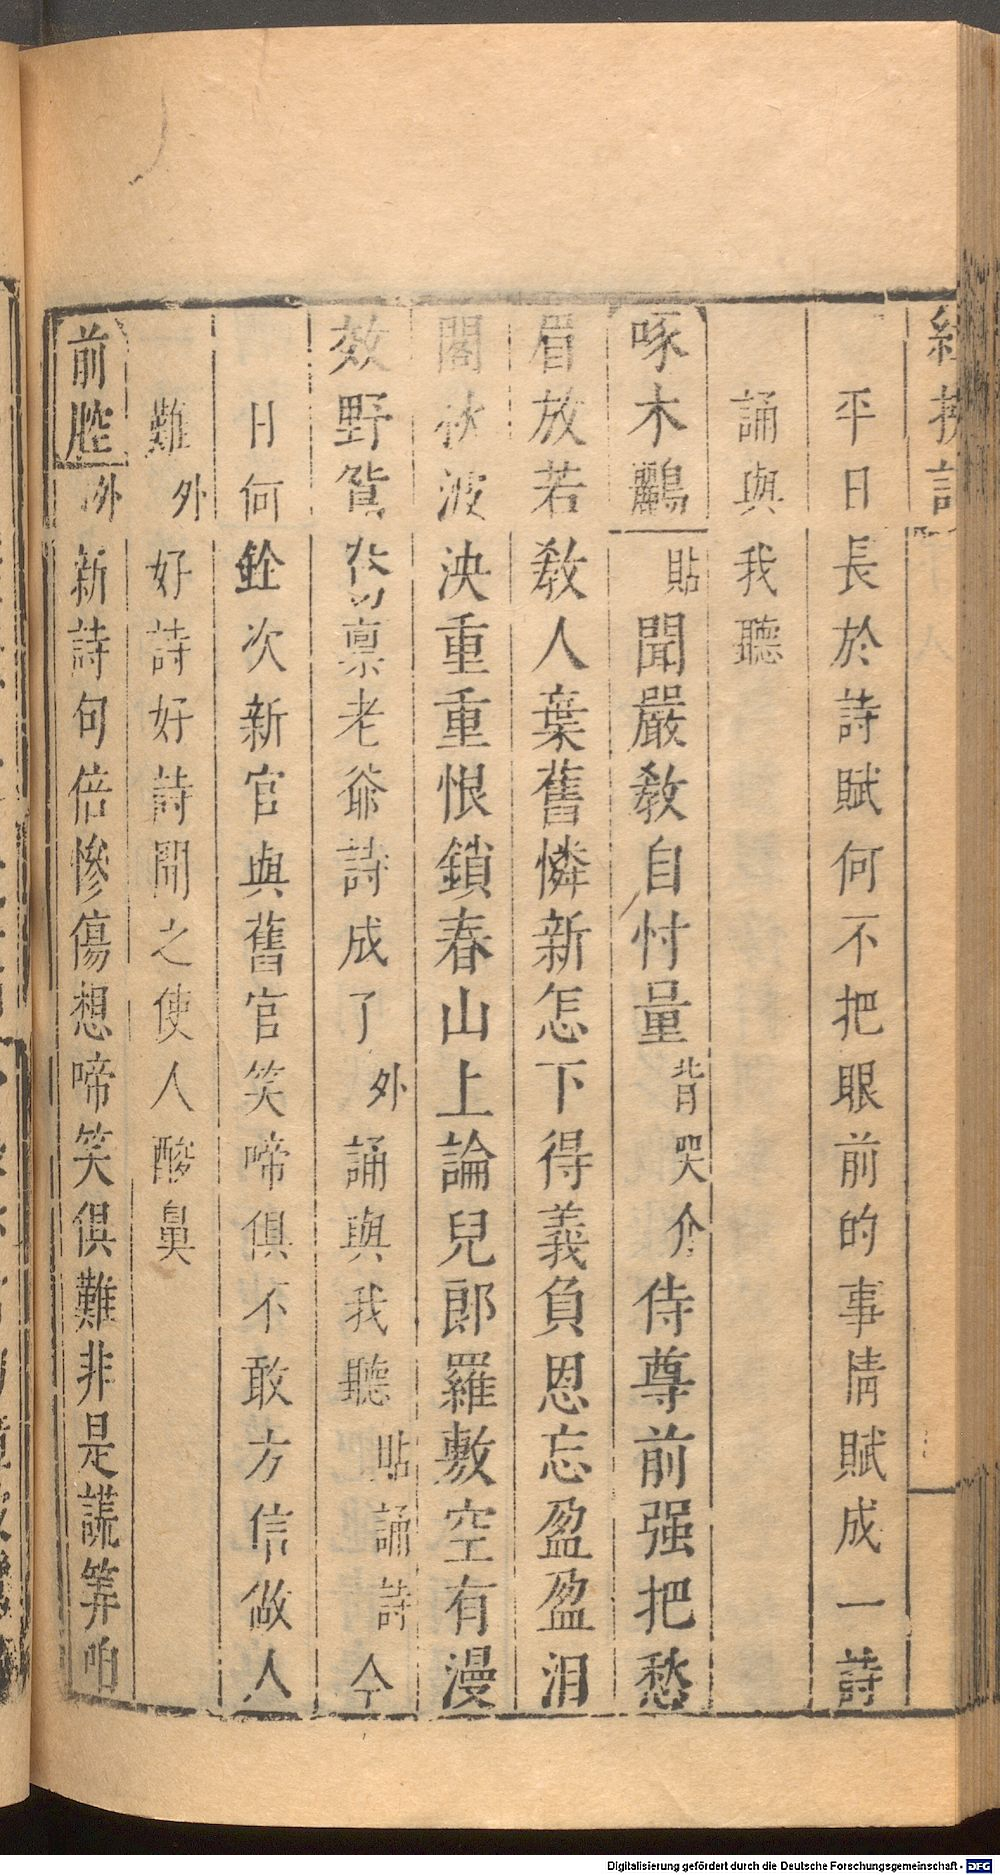 紅拂記
平日長於詩賦何不把眼前的事情賦成一詩
誦與我聽
啄木鸝 貼 聞嚴敎自忖量 背哭介 侍尊前强把愁
眉放若敎人葉舊憐新怎下得義負恩忘盈盈泪
閣秋波泱重重恨鎖春山上論兒郞羅敷空有漫
效野鴛 禀老爺詩成了 外 誦與我聽 貼 誦詩 今
日何銓次新官與舊官笑啼俱不敢方信做人
難 外 好詩好詩聞之使人酸鼻
前腔 外 新詩句倍慘傷想啼笑俱難非是謊筭咱
Digitalisierung gefördert durch die Deutsche Forschungsgemeinschaft - DFG